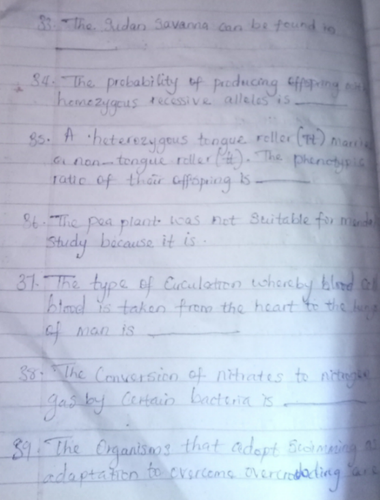 33. The Sudan Savanna can be found in
34. The probability of producing offspring with
homozygous recessive alleles is
35. A heterozygous tongue roller (Tt) marries
a non-tongue roller (tt). The phenotypic
ratio of their offspring is
36. The pea plant was not suitable for
study because it is.
37. The type of Circulation whereby
blood is taken from the heart to the lungs
of man is
38. The Conversion of nitrates to nitrogen
gas by Certain bacteria is
39. The Organisms that adopt Swarming
adaptation to overcome overcrowding are